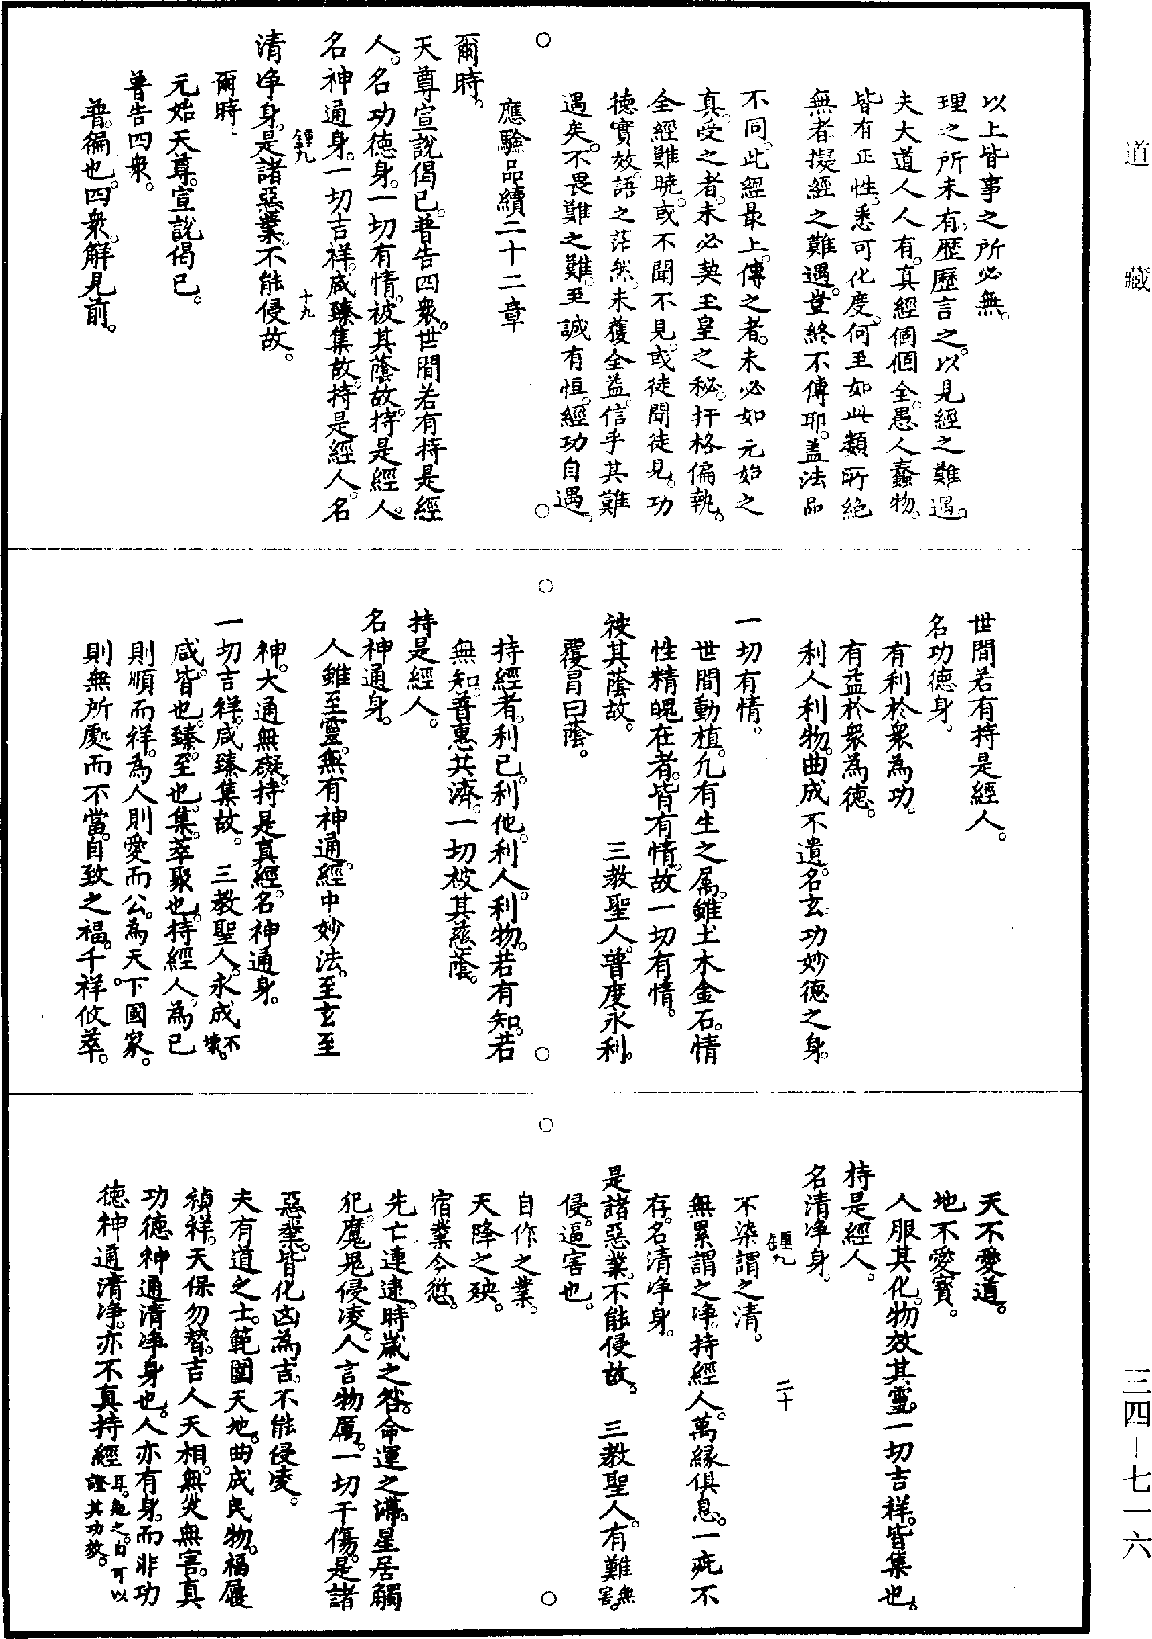 道藏
三四—七一六
以上皆事之所必無。
理之所未有。歷歷言之。以見經之難遇。
夫大道人人有。真經個個全。愚人蠢物。
皆有正性。悉可化度。何至如此類所絕
無者擬經之難遇。豈終不傳耶。蓋法品
不同。此經最上。傳之者。未必如元始之
真。受之者。未必契玉皇之秘。扞格偏執。
全經難曉。或不聞不見。或徒聞徒見。功
德實效。語之茫然。未獲全益。信乎其難
遇矣。不畏難之難。至誠有恒。經功自遇。
應驗品續二十二章
爾時。
天尊宣說偈已。普告四衆。世間若有持是經
人。名功德身。一切有情。被其蔭故。持是經人。
名神通身。一切吉祥。咸臻集故。持是經人。名
鍾九 十九
清淨身。是諸惡業。不能侵故。
爾時。
元始天尊。宣說偈已。
普告四衆。
普。徧也。四衆。解見前。
世間若有持是經人。
名功德身。
有利於衆為功。
有益於衆為德。
利人利物。曲成不遺。名玄功妙德之身。
一切有情。
世間動植。凡有生之属。雖土木金石。情
性精魄在者。皆有情。故一切有情。
被其蔭故。 三教聖人。普度永利。
覆冒曰蔭。
持經者。利己。利他。利人。利物。若有知。若
無知。普惠共濟。一切被其慈蔭。
持是經人。
名神通身。
人雖至靈。無有神通。經中妙法。至玄至
神。大通無礙。持是真經。名神通身。
一切吉祥。咸臻集故。 三教聖人。永成不壞。
咸。皆也。臻。至也。集。萃聚也。持經人。為己
則順而祥。為人則愛而公。為天下國家。
則無所處而不當。自致之福。千祥攸萃。
天不愛道。
地不愛寶。
人服其化。物效其靈。一切吉祥。皆集也。
持是經人。
名清淨身。
鍾九 二十
不染謂之清。
無累謂之淨。持經人。萬緣俱息。一疵不
存。名清淨身。
是諸惡業。不能侵故。 三教聖人。有難無害。
侵。逼害也。
自作之業。
天降之殃。
宿業今愆。
先亡連逮。時歲之咎。命運之溝。星居觸
犯。魔鬼侵凌。人言物厲。一切干傷。是諸
惡業。皆化凶為吉。不能侵凌。
夫有道之士。範圍天地。曲成民物。福履
禎祥。天保勿替。吉人天相。無災無害。真
功德神通清淨身也。人亦有身。而非功
德神通清淨。亦不真持經耳。勉之。自可以證其功效。